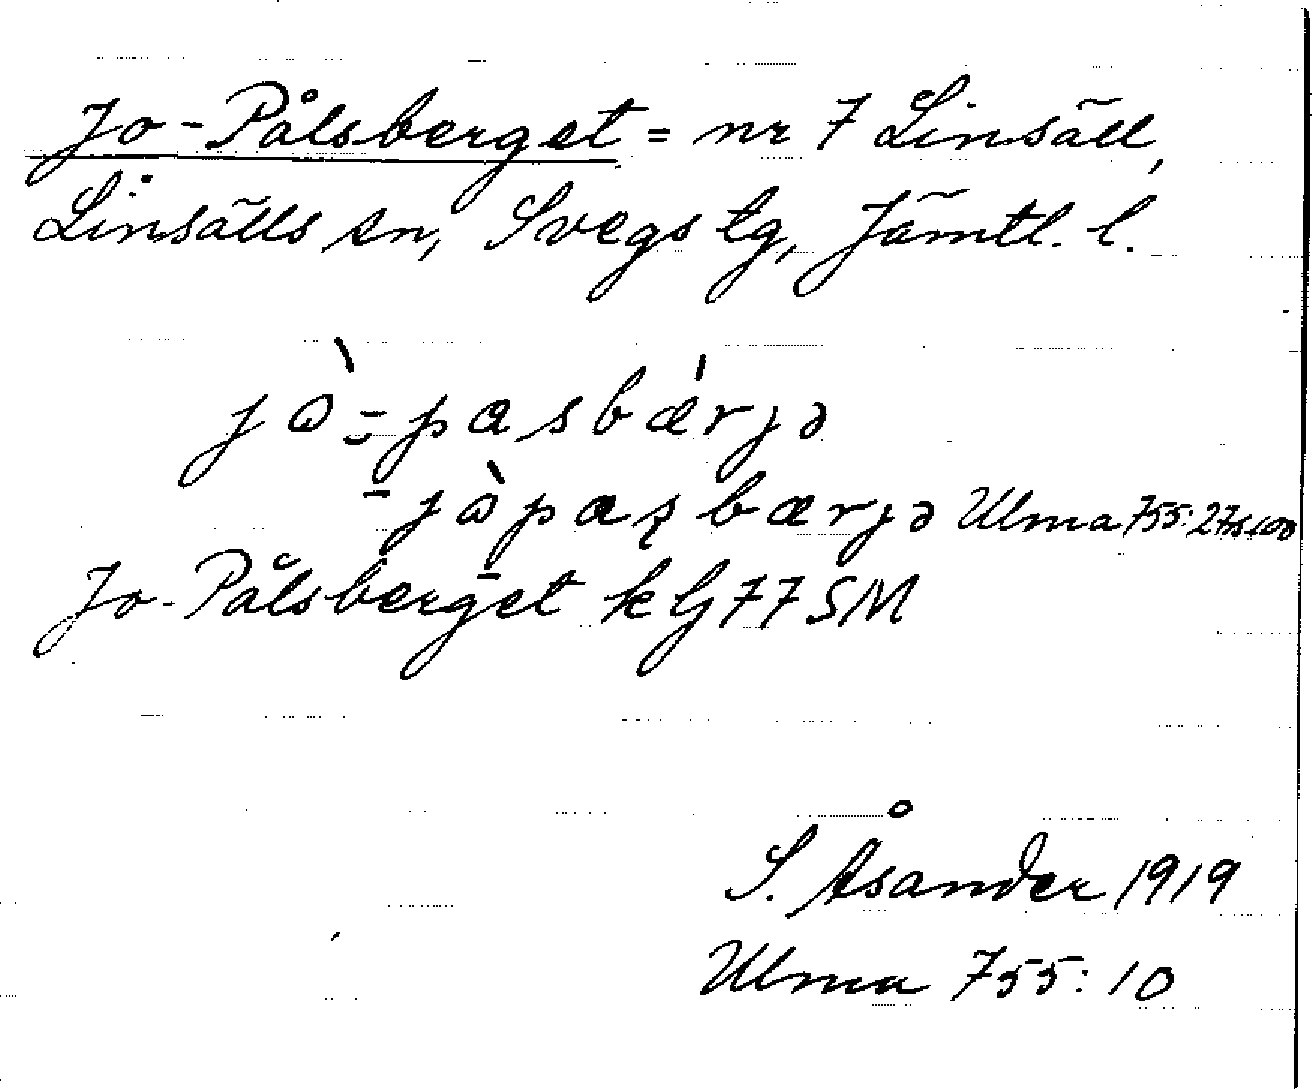 Jo-Pålsberget = nr 7 Linsäll,
Linsälls sn, Svegs tg, Jämtl. l.
jò̀-pasbǽrjə
-jò̀pæʂbærjə Ulma 755:27
Jo-Pålsberget k Gj 77 SM
S. Åsander 1919
Ulma 755:10